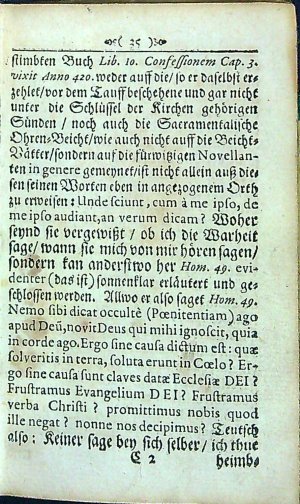 ( 35 )
stimbten Buch Lib. 10. Confessionem Cap. 3.
vixit Anno 420. weder auff die / so er daselbst er-
zehlet / vor dem Tauff beschehene und gar nicht
unter die Schlüssel der Kirchen gehörigen
Sünden / noch auch die Sacramentalische
Ohren-Beicht / wie auch nicht auff die Beicht-
Vätter / sondern auf die fürwitzigen Novellan-
ten in genere gemeynet / ist nicht allein auß die-
sen seinen Worten eben in angezogenem Orth
zu erweisen: Unde sciunt, cum à me ipso, de
me ipso audiant, an verum dicam? Woher
seynd sie vergewißt / ob ich die Warheit
sage / wann sie mich von mir hören sagen /
sondern kan anderstwo her Hom. 49. evi-
denter (das ist) sonnenklar erläutert und ge-
schlossen werden. Allwo er also saget Hom. 49.
Nemo sibi dicat occultè (Pœnitentiam) ago
apud Deū, novit Deus qui mihi ignoscit, quia
in corde ago. Ergo sine causa dictum est: quæ
solveritis in terra, soluta erunt in Cœlo? Er-
go sine causa sunt claves datæ Ecclesiæ DEI?
Frustramus Evangelium DEI? Frustramus
verba Christi? promittimus nobis quod
ille negat? nonne nos decipimus? Teutsch
also: Keiner sage bey sich selber / ich thue
C 2 heimb-